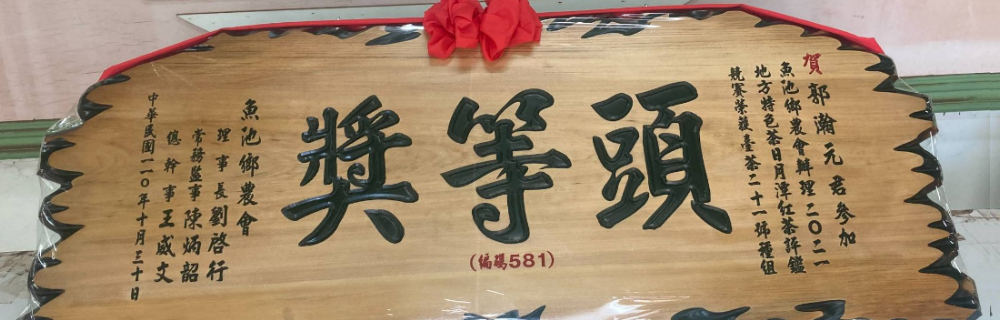 賀 郭瀚元君參加
魚池鄉農會辦理二〇二一
地方特色茶日月潭紅茶評鑑
競賽榮獲臺茶二十一號種組
頭等獎
(編號581)
魚池鄉農會
理事長劉啓行
常務監事陳炳韶
總幹事王威文
中華民國一一〇年十月三十日